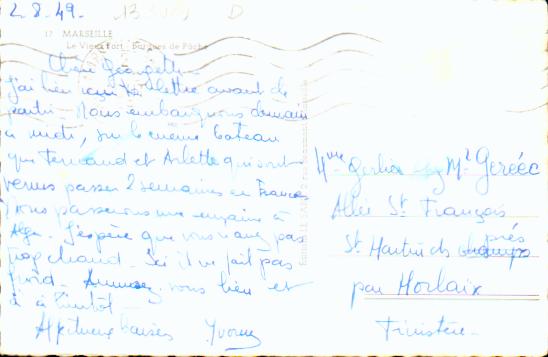 2.8.49.
17 MARSEILLE
Le Vieux Port Barques de Pêche
Chère Georgette
J'ai bien reçu ta lettre avant de
partir. Nous embarquons demain
à midi, sur le même bateau
que Fernand et Arlette qui sont
venus passer 2 semaines en France
Nous passerons une semaine à
Alger. J'espère que vous n'avez pas
trop chaud. Ici il ne fait pas
froid. Amusez vous bien et
à bientôt
Affectueux baisers Yvonne
Mme chez Mr Geréec
Allée St François
St Martin des champs près
par Morlaix
Finistère